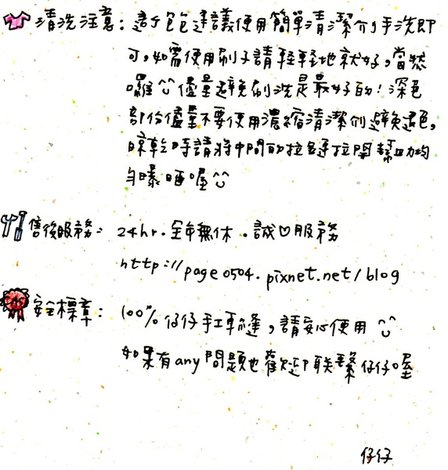 清洗注意：這ㄎ包包建議使用簡單清潔劑手洗即
可，如需使用刷子請輕輕地就好，當然
囉^^儘量避免刷洗是最好的！深色
部份儘量不要使用濃縮清潔劑避免退色，
晾乾時請將中間的拉鏈拉開幫助均
勻曝曬喔^^
售後服務：24hr.全年無休.誠心服務
http://page0504.pixnet.net/blog
安全標章：100%仔仔手工車縫，請安心使用^^
如果有any問題也歡迎聯繫仔仔喔
仔仔